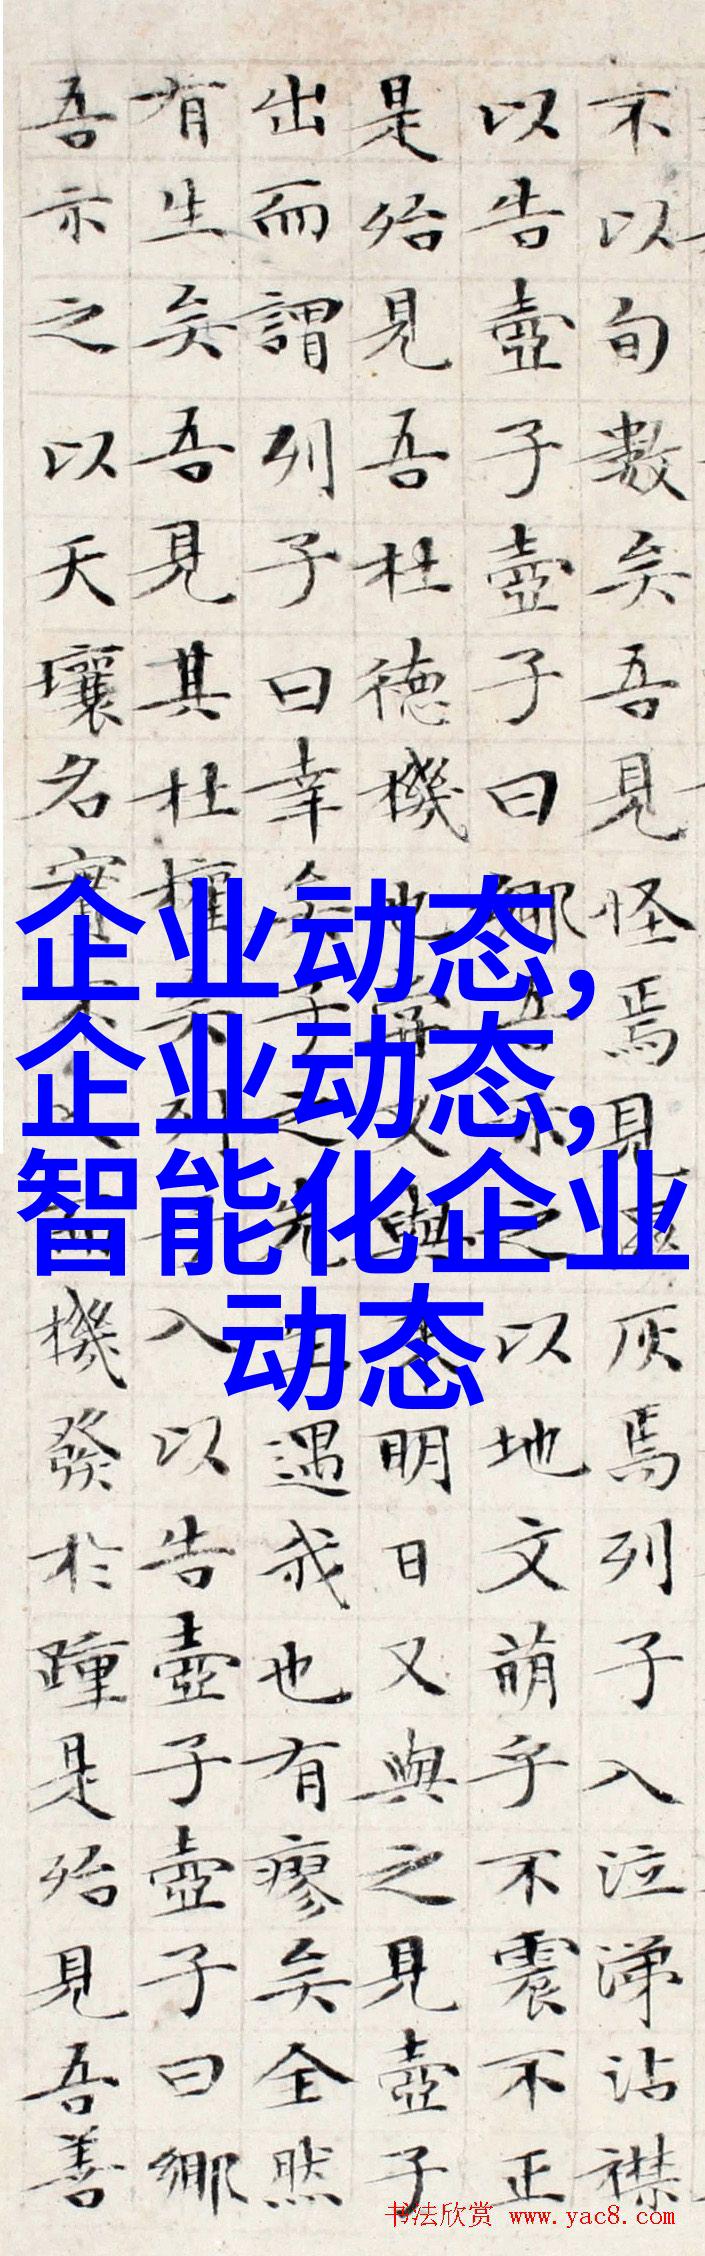 不以旬數矣吾見怪焉見灰焉列子入泣涕沾襟
以告壺子壺子曰鄉吾示之以地文萌乎不震不正
是殆見吾杜德機也嘗又與來明日又與之見壺子
出而謂列子曰幸矣子之先生遇我也有瘳矣全然
有生矣吾見其杜權矣列子入以告壺子壺子曰鄉
吾示之以天壤名實不入而機發於踵是殆見吾善
企业动态,
企业动态,
智能化企业
动态
书法欣赏 www.yac8.com